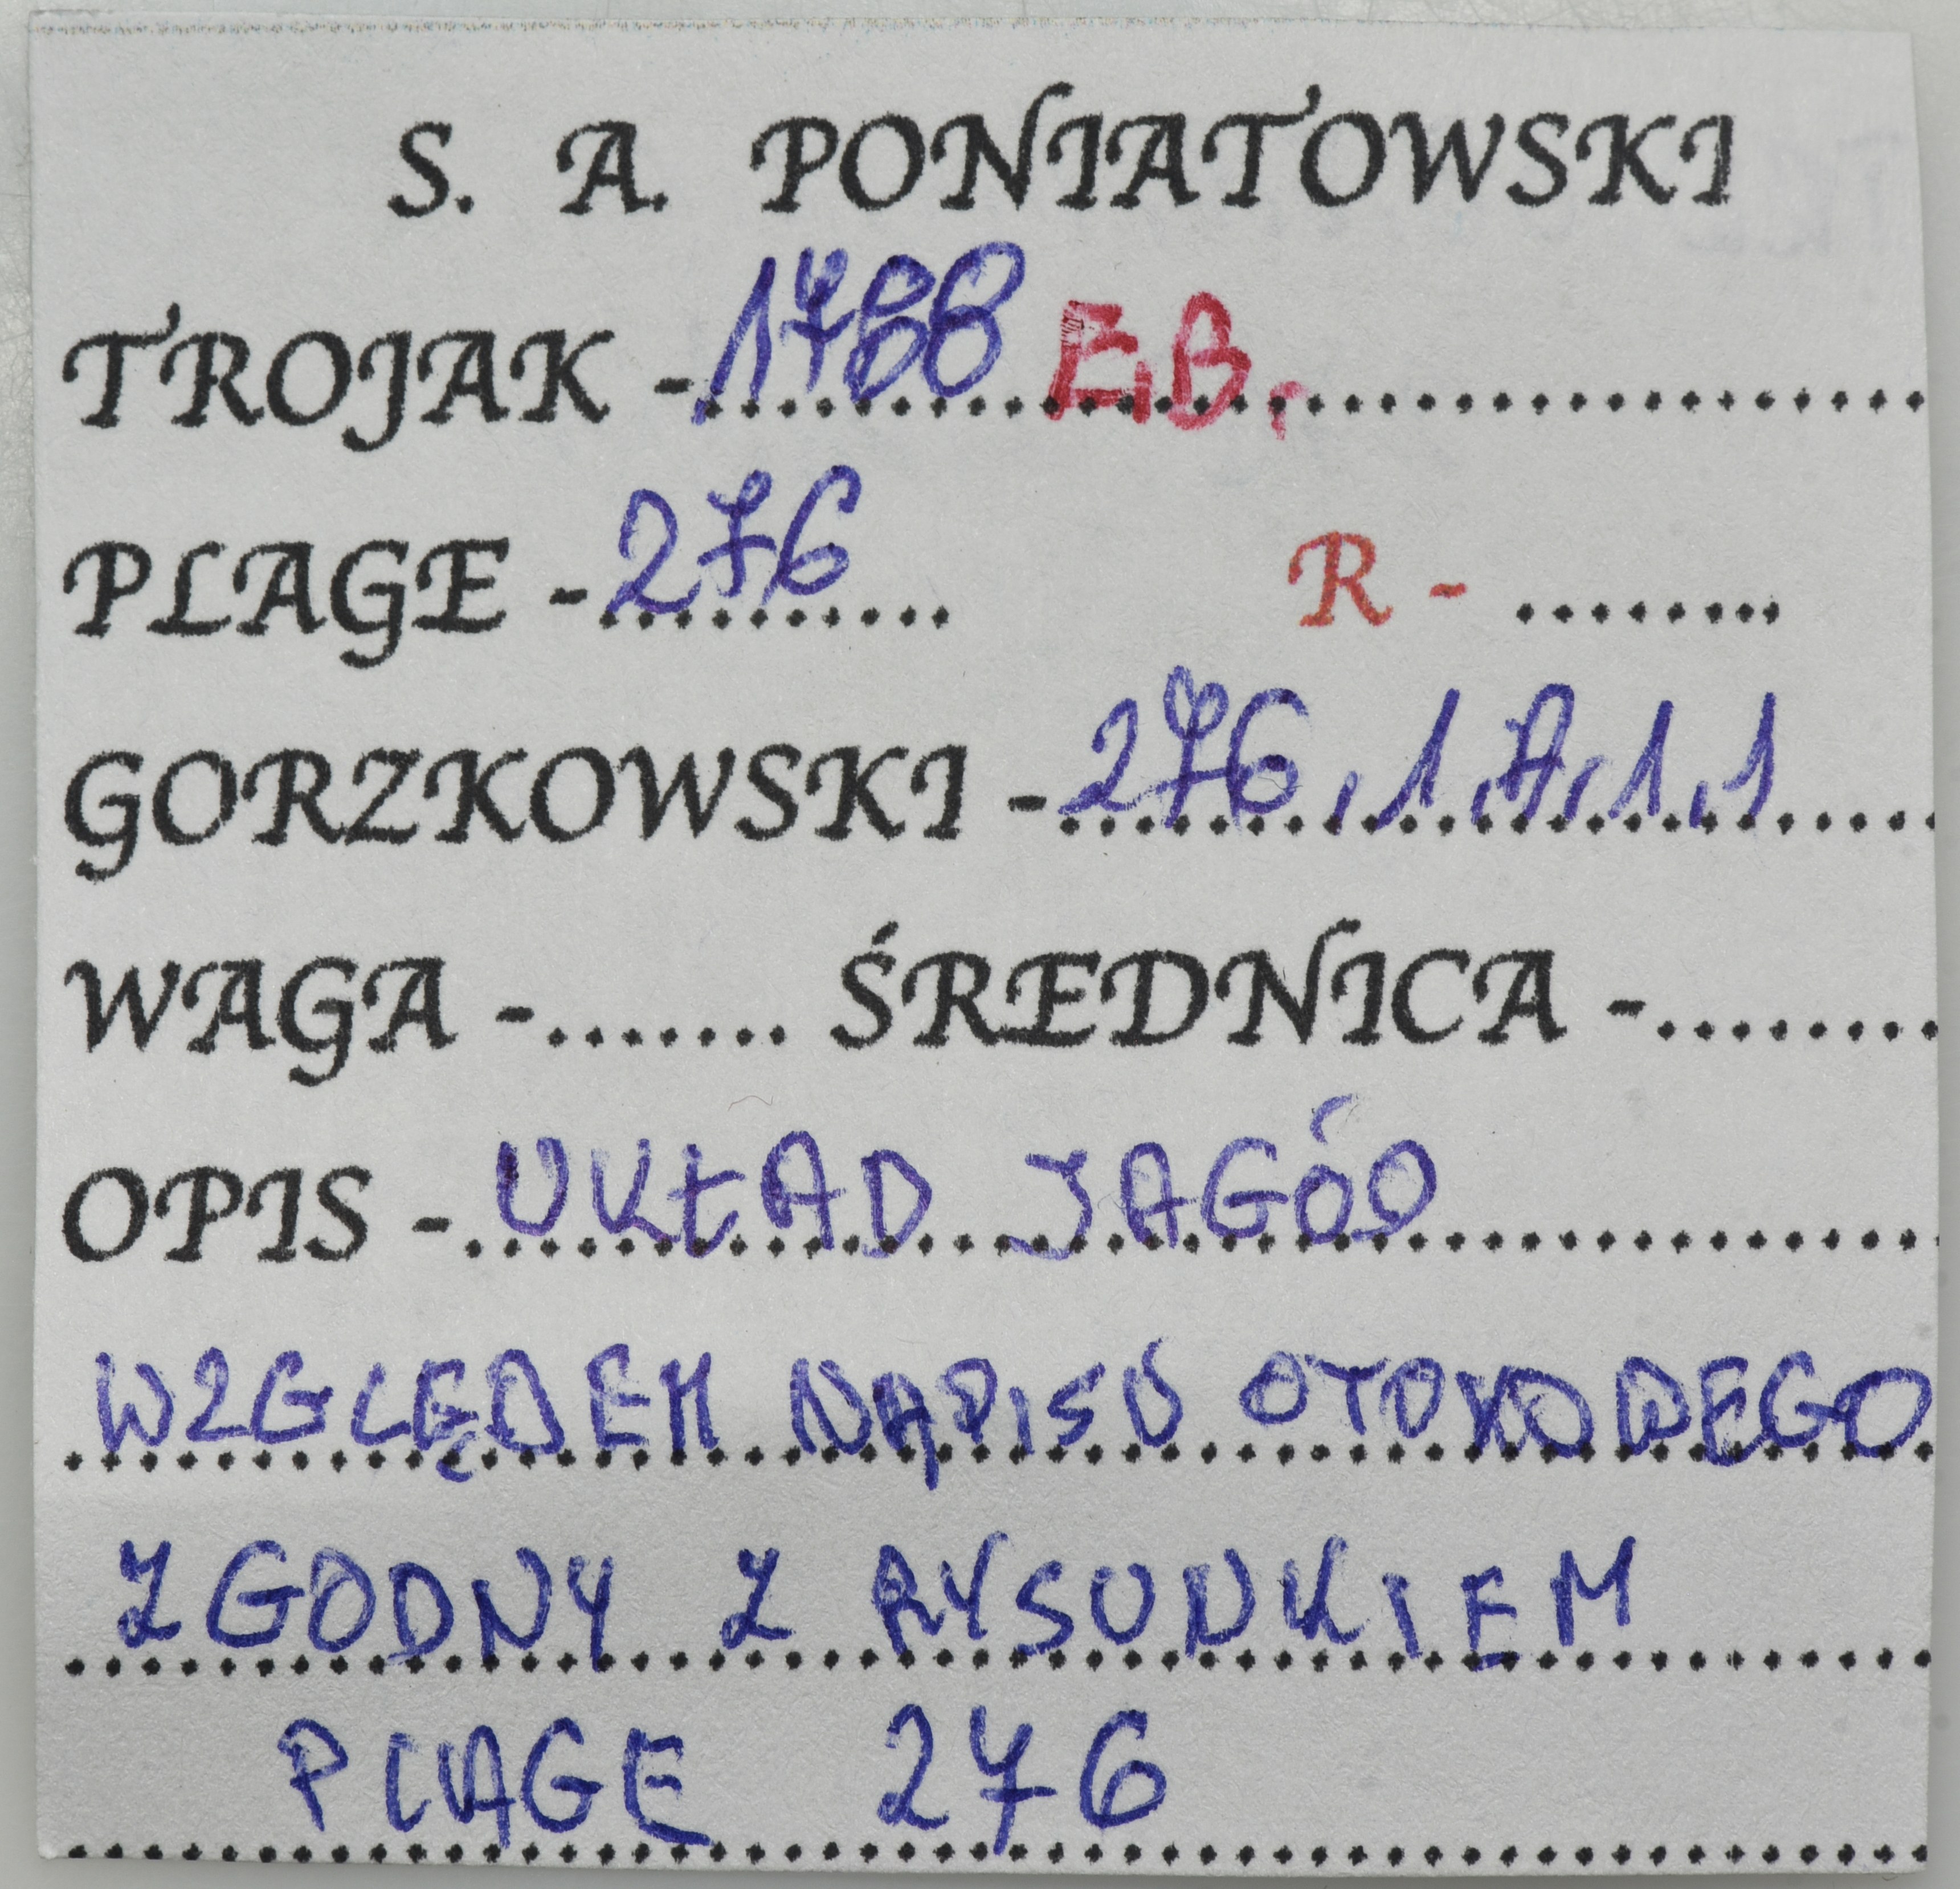 S. A. PONIATOWSKI
TROJAK -1788 E.B.
PLAGE -276 R - ........
GORZKOWSKI -276,1,A,1,1
WAGA -....... ŚREDNICA -........
OPIS - UKŁAD JAGÓD
WZGLĘDEM NAPISU OTOKOWEGO
ZGODNY Z RYSUNKIEM
PLAGE 276